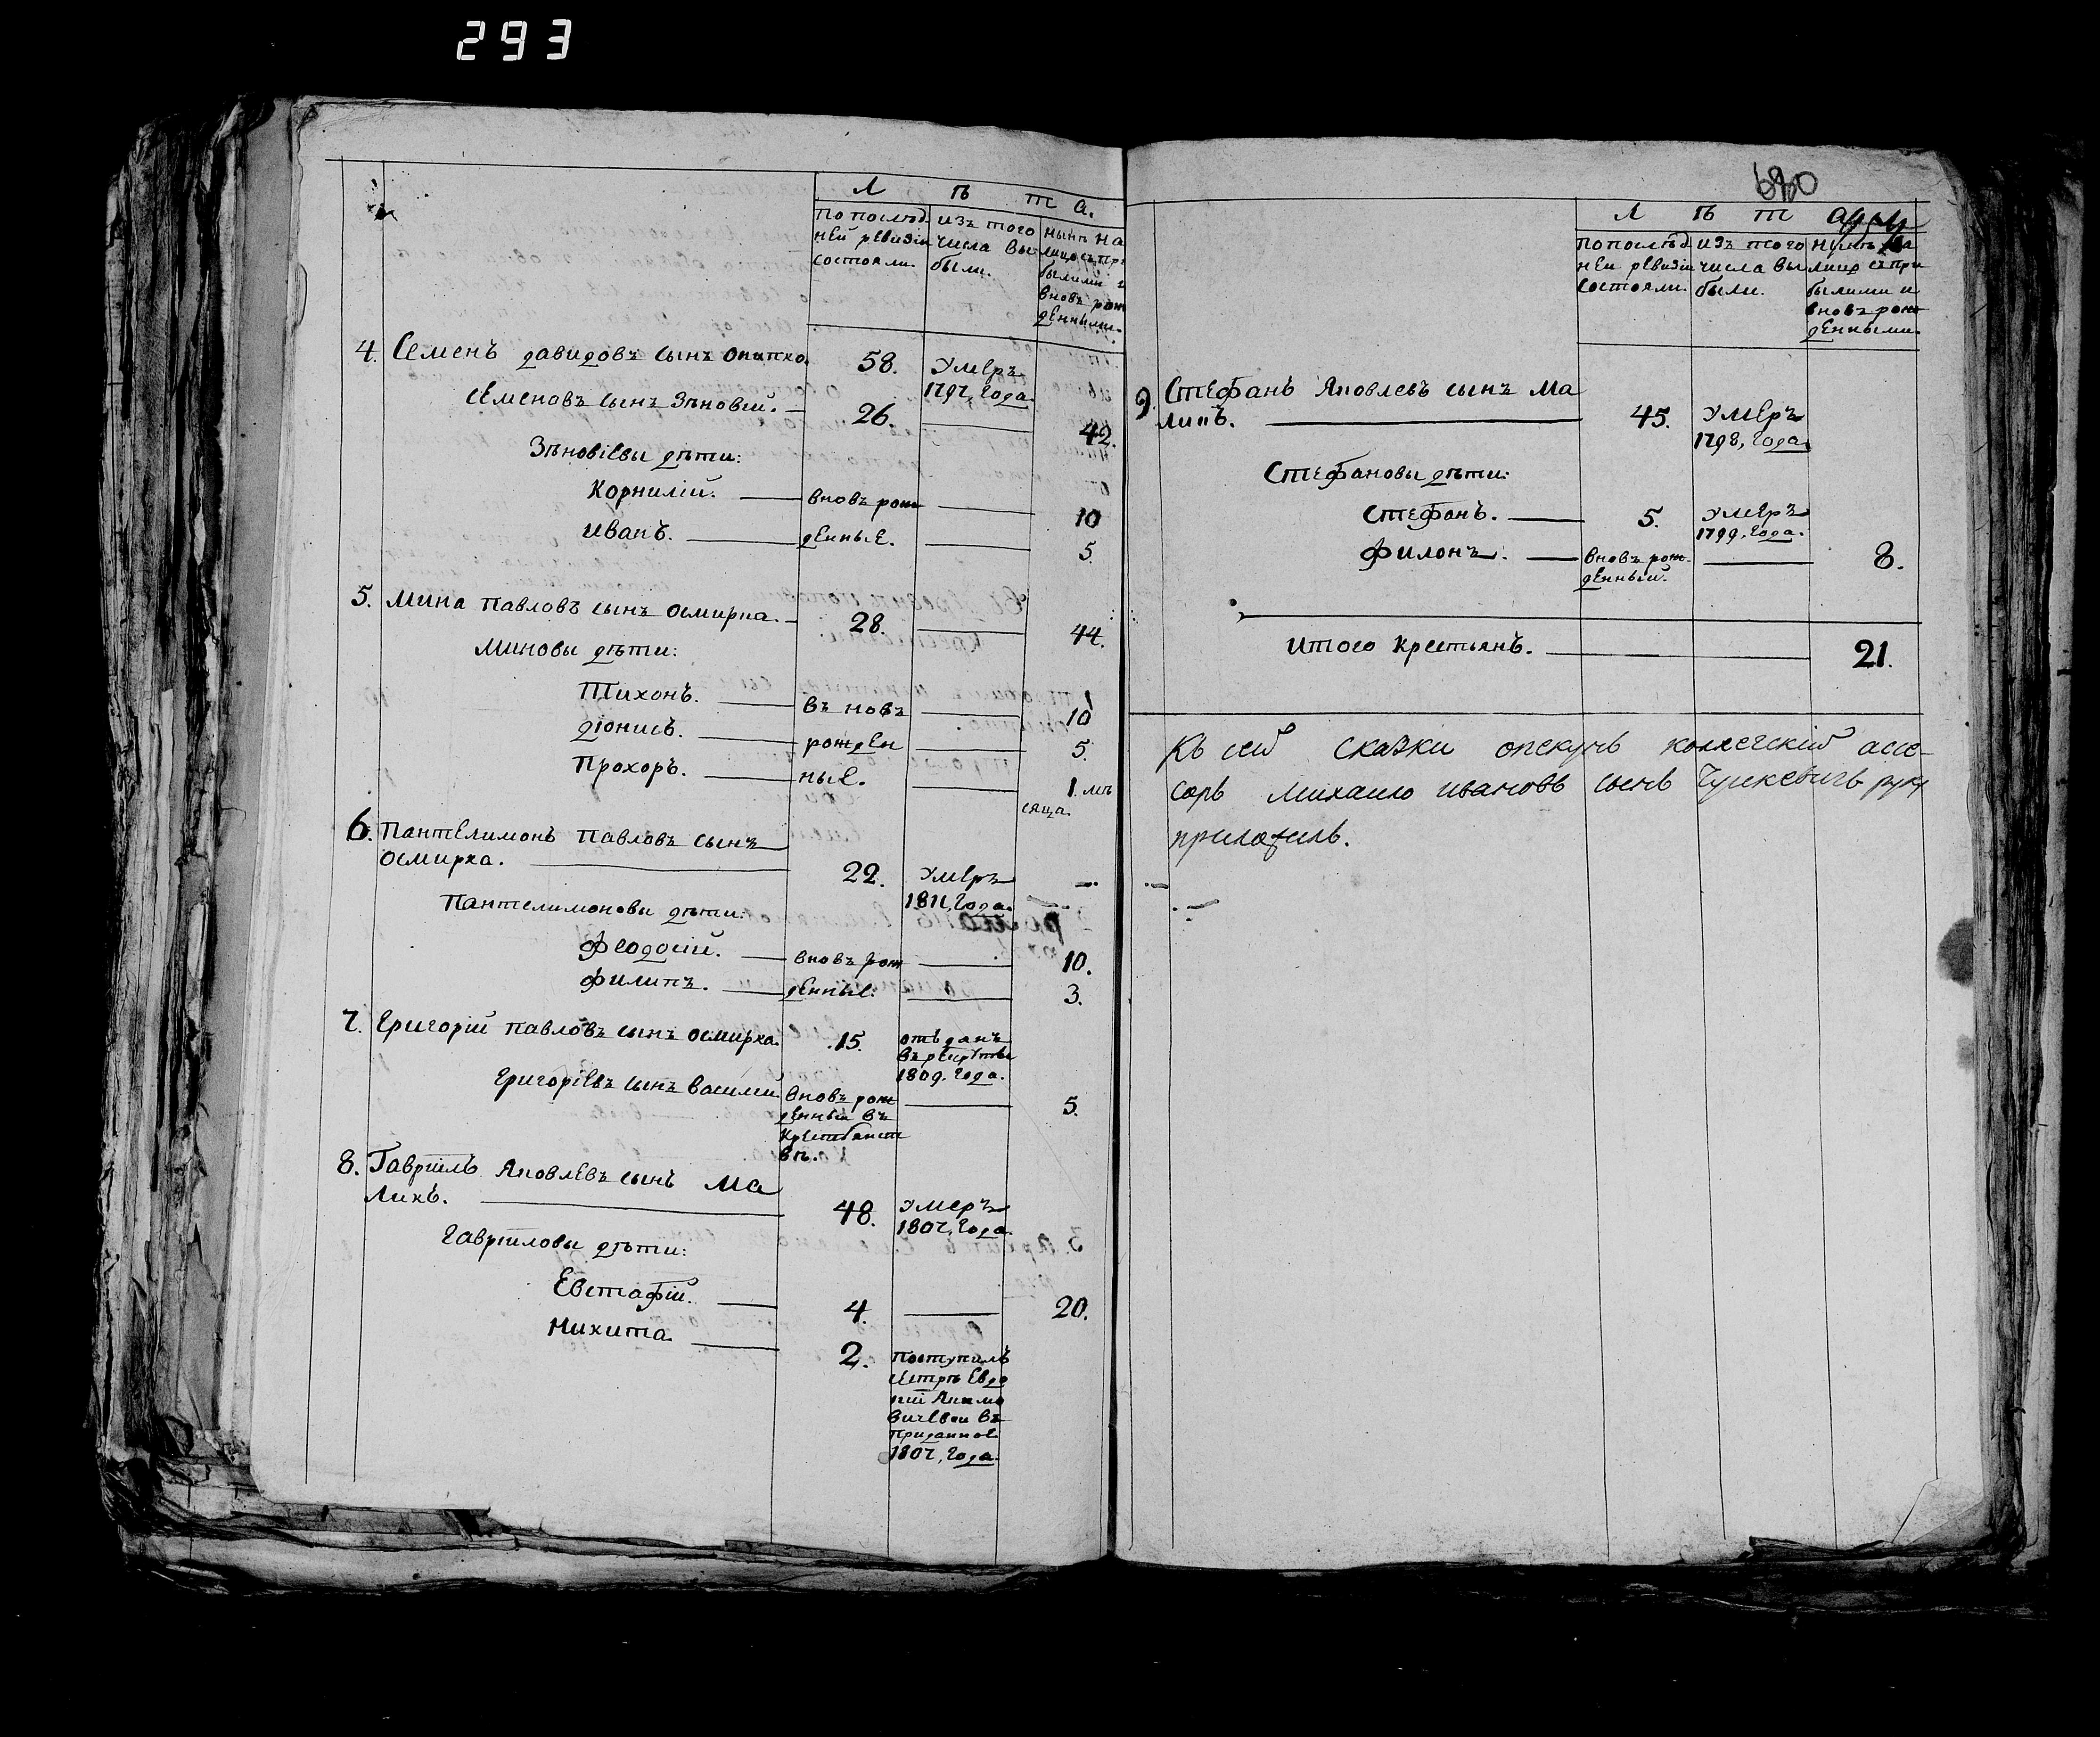 293
Л ѣ т а.
По послѣд
ней ревизіи
состояли.
изъ того
числа вы
были.
нынѣ на
лицо съ при
былими и
вновь рож
денными.
4. Семенъ давидовъ сынъ
58.
Умеръ
1797, Года.
Семеновъ сынъ Зѣновей.
26.
42.
Зѣновіевы дѣти:
Корнилій.
вновь рож
10
иванъ.
денные.
5.
5. Мина павловъ сынъ осмирка.
28.
44.
Миновы дѣти:
Тихонъ.
въ новъ
10
діонисъ.
рожден
5.
Прохоръ.
ные.
1. мѣ
сяца.
6. Пантелимонъ павловъ сынъ
осмирка.
22.
Умеръ
1811, Года.
Пантелимоновы дѣти:
Феодосій.
вновь рож
10.
филипъ.
денные.
3.
7. Григорій павловъ сынъ осмирка.
15.
отъданъ
въ рекруты
1809. Года.
Григоріевъ сынъ василий
вновь рож
денный въ
крестьянст
вѣ.
5.
8. Гавріилъ Яковлевъ сынъ Ма
ликъ.
48.
Умеръ
1807, Года.
Гавріиловы дѣти:
Евстафій.
4.
20.
Никита.
2.
поступилъ
сестрѣ Евдо
кіи
вичевой въ
приданное
1807, Года.
680
Л ѣ т а
По послѣд
ней ревизіи
состояли.
изъ того
числа вы
были.
нынѣ на
лицо съ при
былими и
вновь рож
денными.
9. Стефанъ Яковлевъ сынъ Ма
ликъ.
45.
Умеръ
1798, Года.
Стефановы дѣти:
Стефанъ.
5.
Умеръ
1799, Года.
Филонъ.
вновь рож
денный.
8.
итого крестьянъ.
21.
Къ сей сказки опекунъ коллегскій ассе-
соръ михаило ивановъ сынъ руку
приложилъ.